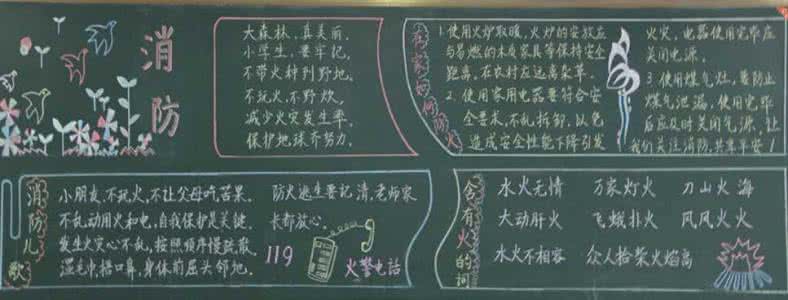 消防
大森林,真美丽,
小学生,要牢记,
不带火种到野地。
不玩火,不野炊,
减少火灾发生率,
保护地球齐努力。
在家如何防火
1.使用火炉取暖,火炉的安放应
与易燃的木质家具等保持安全
距离,在农村应远离柴草。
2.使用家用电器要符合安
全要求,不乱拆卸,以免
造成安全性能下降引发
火灾,电器使用完毕应
关闭电源。
3.使用煤气灶,要防止
煤气泄漏,使用完毕
后应及时关闭气源,让
我们关注消防,共享平安!
消防儿歌
小朋友,不玩火,不让父母吃苦果。
不乱动用火和电,自我保护是关键。
发生火灾心不乱,按照顺序慢疏散。
湿毛巾捂口鼻,身体前屈头邻地。
防火逃生要记清,老师家
长都放心。
119
火警电话
含有火的词
水火无情 万家灯火 刀山火海
大动肝火 飞蛾扑火 风风火火
水火不相容 众人拾柴火焰高